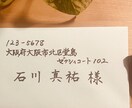 123-5678
大阪府大阪市北区堂島
ゼクシィコート102
石川真祐 様